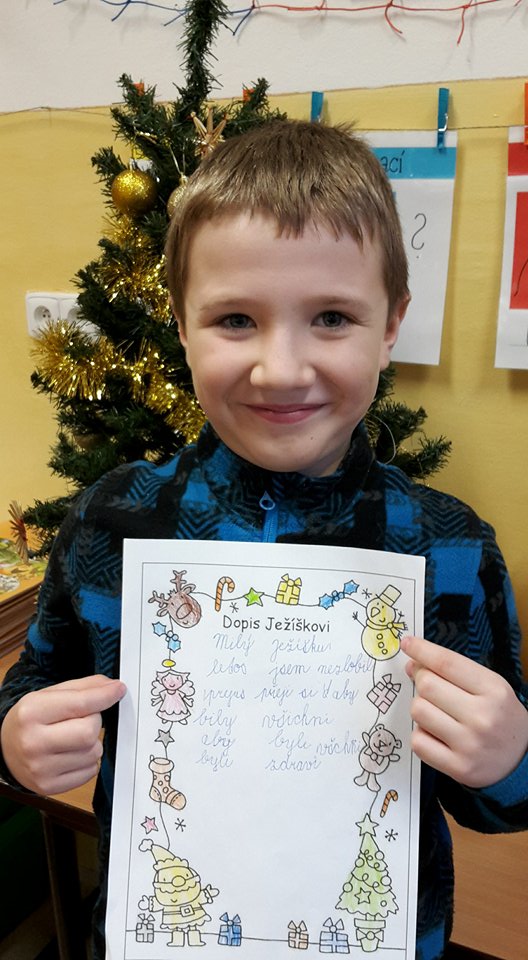 ací
?
Dopis Ježíškovi
Milý ježíšku
letos jsem nezlobil
přeji si aby
byly všichni
aby byli všchni
byli zdraví